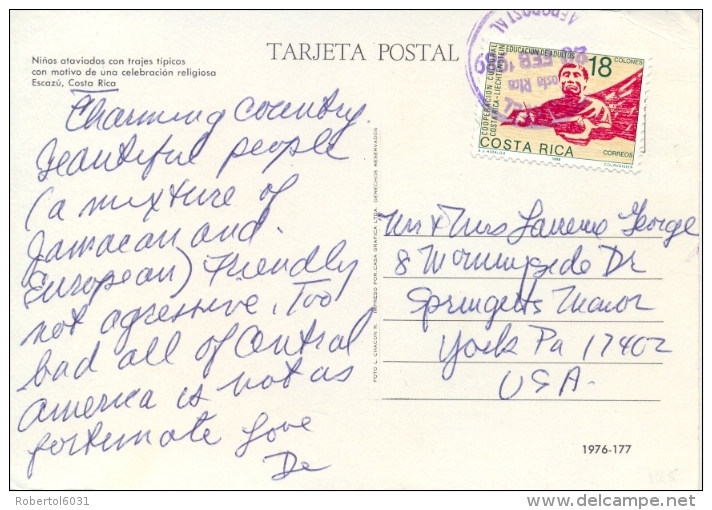 Niños ataviados con trajes típicos
con motivo de una celebración religiosa
Escazú, Costa Rica
TARJETA POSTAL
AEROPOSTAL
FEB 1989
Costa Rica
COOPERACION CULTURAL
COSTA RICA-LIECHTENSTEIN
EDUCACION DE ADULTOS
18 COLONES
COSTA RICA
CORREOS
Charming country.
Beautiful people
(a mixture of
Jamacan and
European) Friendly
not agressive. Too
bad all of Central
America is not as
fortunate Love
De
FOTO L. CHACON R. IMPRESO POR CASA GRAFICA LTDA. DERECHOS RESERVADOS
Mr & Mrs George
8 Morningside Dr
Springetts Manor
York Pa 17402
USA.
1976-177
185
Robertol6031
delcampe.net